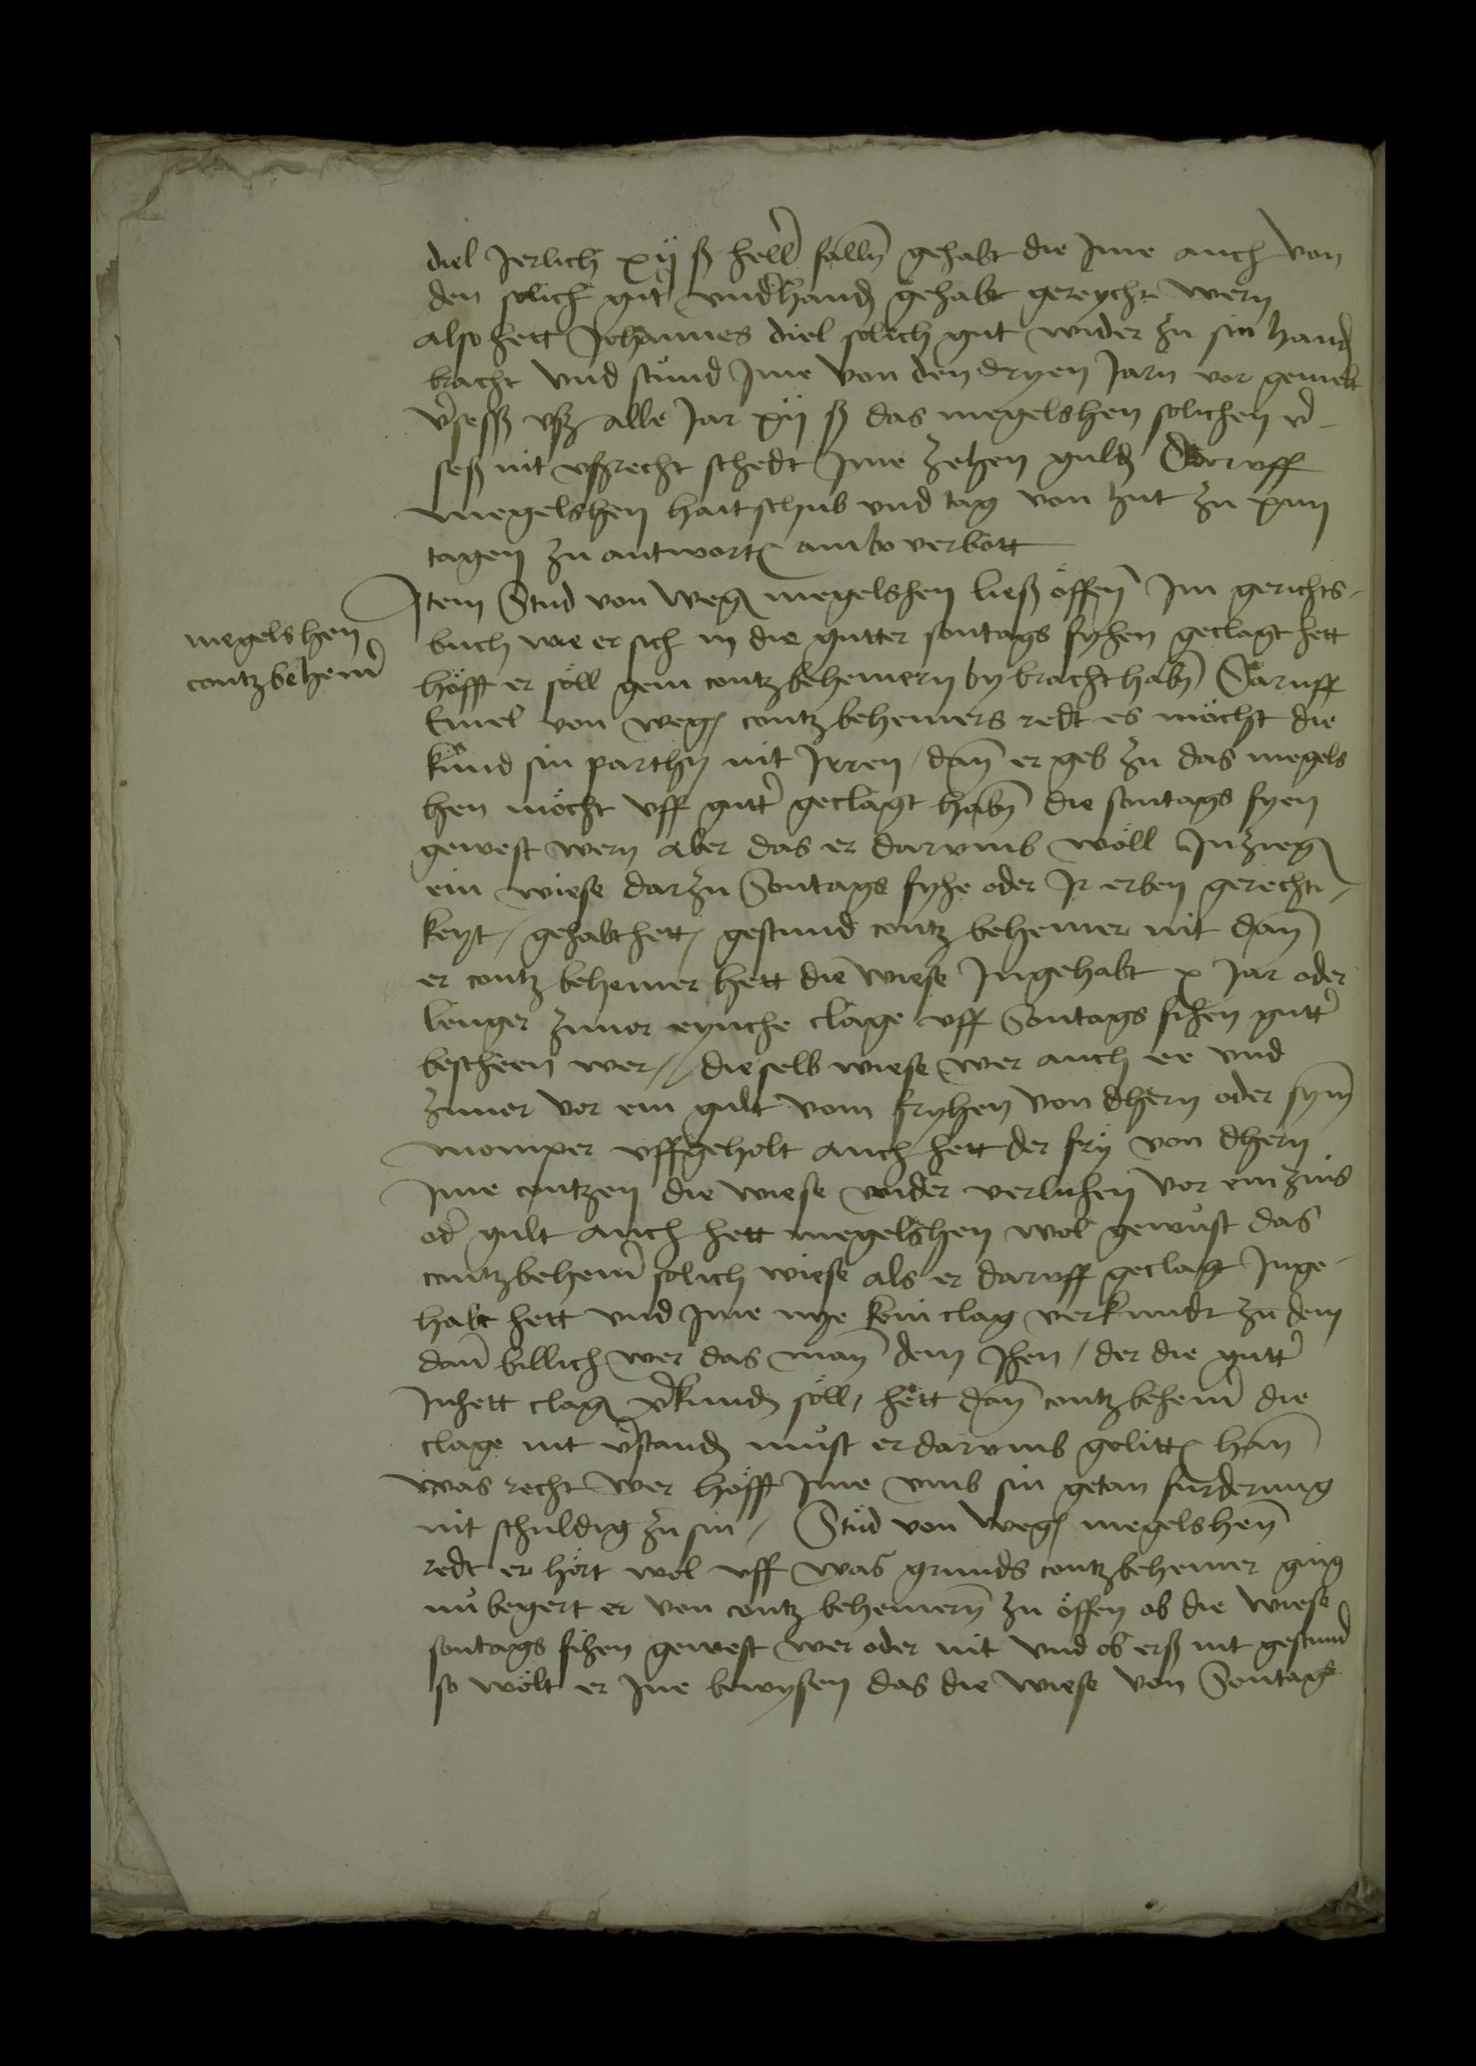 diel Jerlich xij ß hell falln gehabt die Jme auch von
den solich gut vnd handh gehabt gereycht wern
also hett Johannes diel solich gut wider zu sin hand
bracht vnd stund Jme von den dryen Jarn vor gemelt
vseß vß alle Jar xij ß das megelshen solichen v-
seß nit vßrecht schedt Jme zehen guld Daruff
megelshen hait schub vnd tag von hut zu xiiij
tagen zu antwort ambo verbott
megelshen
contz behem
Item Stud von weg megelshen ließ öffen Im gerichts-
buch wie er sich in die gutter sontags fyhen geclagt hett
höfft er söll gein contz behemern by bracht habn Daruff
Emel von weg contz behemers redt es möcht die
kund sin parthy nit Jrren / dan er geb zu das megels
hen möcht vff gutt geclagt habn die sontags fyen
gewest wern aber das er darumb wöll Jnzieg
ein wiese darzu Sontags fyhe oder Jr erben gerechti-
keyt / gehabt hett / gestund contz behemer nit dan
er contz behemer hett die wiese Jngehabt x Jar oder
lenger zuuor eynche clage vff Sontags fihen gutt
bescheen wer // dieselb wiese wer auch ee vnd
zuuor vor ein gult vom fryhen von dhern oder sym
momper vffgeholt auch hett der fry von dhern
Jme contzen die wiese wider verluhen vor ein zins
od gult auch hett megelshen wol gewust das
contz behem solich wiese als er daruff geclagt Jnge-
habt hett vnd Jme nye kein clag verkundt zu dem
dan billich wer das man dem Jhen / der die gutt
Jnhett clag vkund söll / hett dan contz behem die
clage nit vstand must er darumb gelitt han
was recht wer höfft Jme vmb sin getan furderung
nit schuldig zu sin / Stud von weg megelshen
redt er hört wol vff was grunds contz behemer ging
nu begert er von contz behemern zu öffen ob die wiese
sontags fihen gewest wer oder nit vnd ob erß nit gestund
so wölt er Jne bewysen das die wiese von Sontags